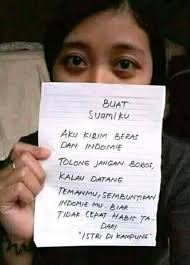 BUAT
SUAMIKU
AKU KIRIM BERAS
DAN INDOMIE
TOLONG JANGAN BOROS,
KALAU DATANG
TEMANMU, SEMBUNYIKAN
INDOMIE MU. BIAR
TIDAK CEPAT HABIS TA.
DARI
"ISTRI DI KAMPUNG"